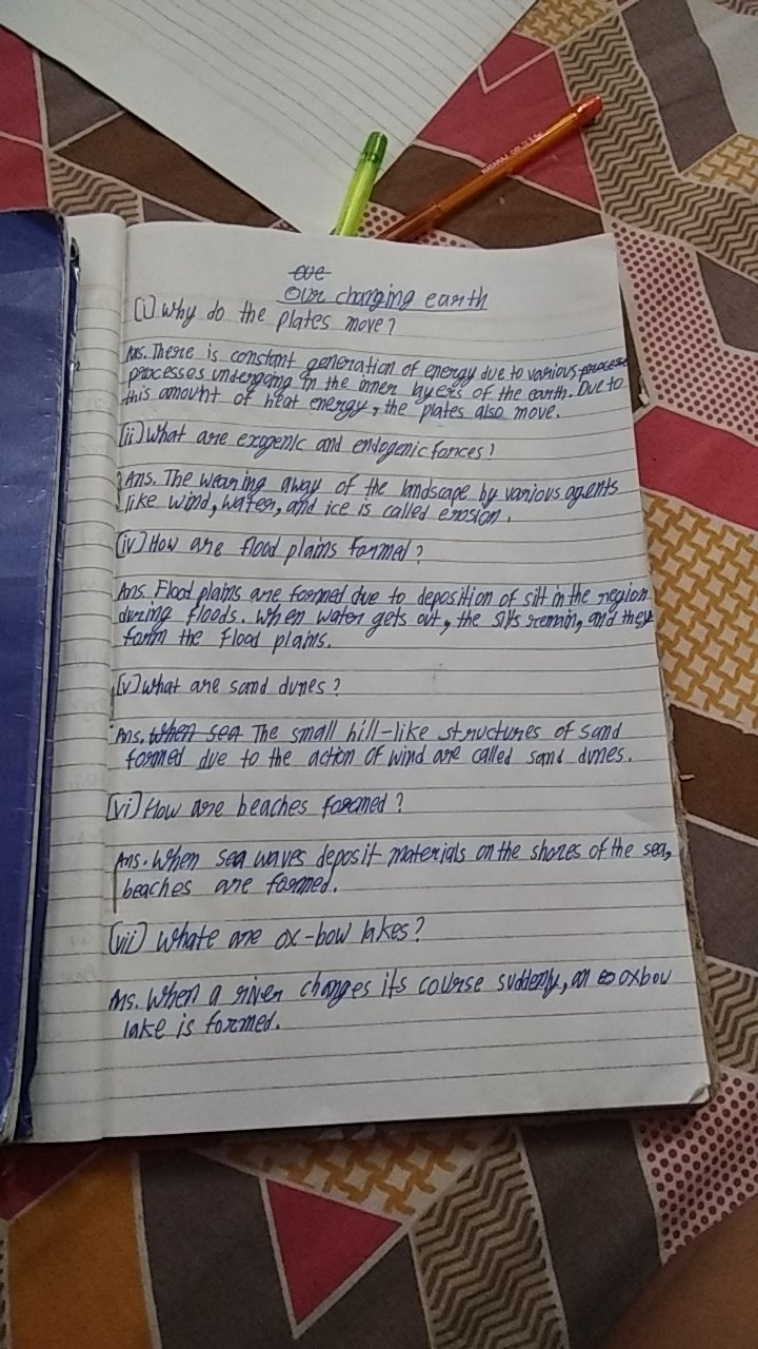 Our changing earth
(i) Why do the plates move?
Ans. There is constant generation of energy due to various process
processes undergoing in the inner layers of the earth. Due to
this amount of heat energy, the plates also move.
(ii) What are exogenic and endogenic forces?
Ans. The wearing away of the landscape by various agents
like wind, water, and ice is called erosion.
(iv) How are flood plains formed?
Ans. Flood plains are formed due to deposition of silt in the region
during floods. When water gets out, the silts remain, and they
form the flood plains.
(v) what are sand dunes?
Ans. When sea The small hill-like structures of sand
formed due to the action of wind are called sand dunes.
(vi) How are beaches formed?
Ans. When sea waves deposit materials on the shores of the sea,
beaches are formed.
(vii) Whate are ox-bow lakes?
Ans. When a river changes its course suddenly, an oxbow
lake is formed.